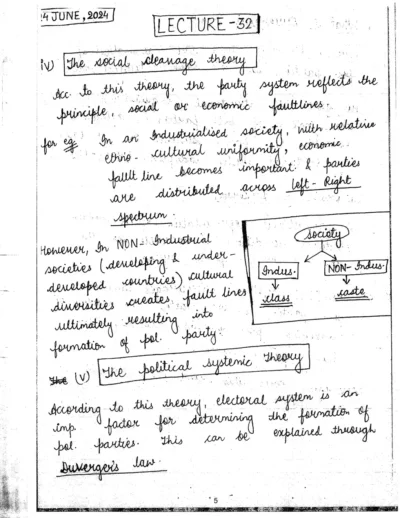 14 JUNE, 2024
LECTURE - 32
iv) The social cleavage theory
Acc. to this theory, the party system reflects the
principle, social or economic faultlines.
for eg. In an Industrialised society, with relative
ethno-cultural uniformity, economic
fault line becomes important & parties
are distributed across left - Right
spectrum.
However, In NON-Industrial
societies (developing & under-
developed countries) cultural
diversities creates fault lines
ultimately resulting into
formation of pol. party.
Society
Indus. NON-Indus.
class caste
(v) The political systemic theory
According to this theory, electoral system is an
imp. factor for determining the formation of
pol. parties. This can be explained through
Duverger's law.
5